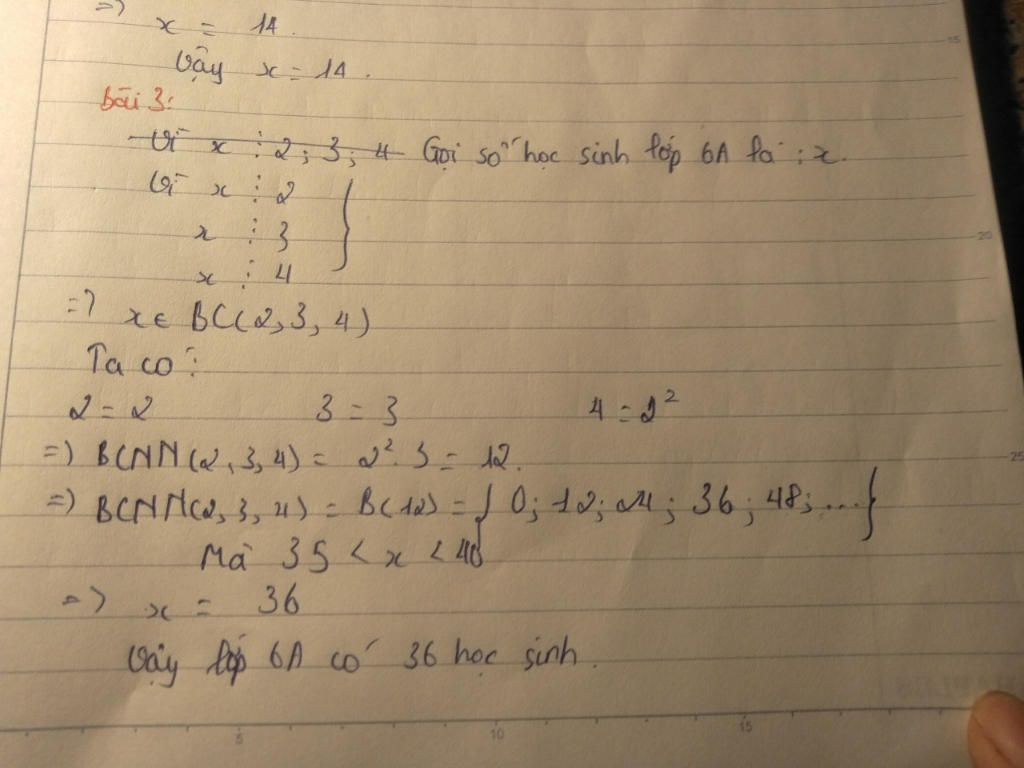 => x = 14.
Vậy x = 14.
bài 3:
Vì x ⋮ 2; 3; 4 Gọi số học sinh lớp 6A là : x.
Vì x ⋮ 2
x ⋮ 3
x ⋮ 4
=> x ∈ BC(2,3,4)
Ta có:
2 = 2 3 = 3 4 = 2²
=> BCNN(2,3,4) = 2².3 = 12.
=> BCNN(2,3,4) = B(12) = { 0; 12; 24; 36; 48; ...}
Mà 35 < x < 40
=> x = 36
Vậy lớp 6A có 36 học sinh.
15
20
25
5 10 15